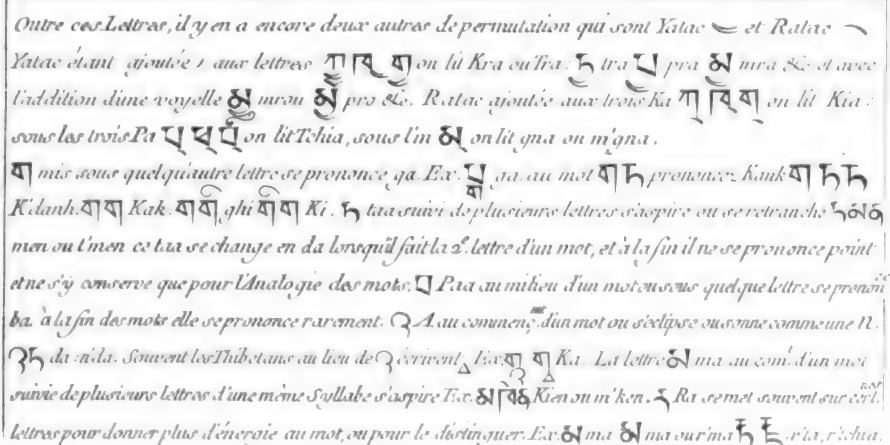 Outre ces Lettres, il y en a encore deux autres de permutation qui sont Yatac et Ratac
Yatac étant ajoutée aux lettres ཀ ཁ ག on lit Kra ou Tra. ཏ tra པ pra མ mra &c et avec
l'addition d'une voyelle མ mrou མ pro &c. Ratac ajoutée aux trois Ka ཀ ཁ ག on lit Kia.
sous les trois Pa པ ཕ བ on lit Tchia, sous l'm མ on lit gna ou m'gna.
ག mis sous quelqu'autre lettre se prononce ga. Ex. ga. au mot prononcez Kank
K'danh. གག Kak. ghi Ki. ཏ taa suivi de plusieurs lettres s'aspire ou se retranche
men ou t'men ce taa se change en da lorsqu'il fait la 2e. lettre d'un mot, et à la fin il ne se prononce point
et ne s'y conserve que pour l'Analogie des mots. པ Paa au milieu d'un mot ou sous quelque lettre se prononce
ba. à la fin des mots elle se prononce rarement. A au commencmt. d'un mot ou s'eclipse ou sonne comme une n.
da n'da. Souvent les Thibetans au lieu de écrivent Ex. Ka. La lettre མ ma au com. d'un mot
suivie de plusieurs lettres d'une même Syllabe s'aspire Ex. Kien ou m'ken. Ra se met souvent sur cert.nes
lettres pour donner plus d'énergie au mot, ou pour le distinguer. Ex. མ ma མ ma ou r'ma r'ta, r'chia